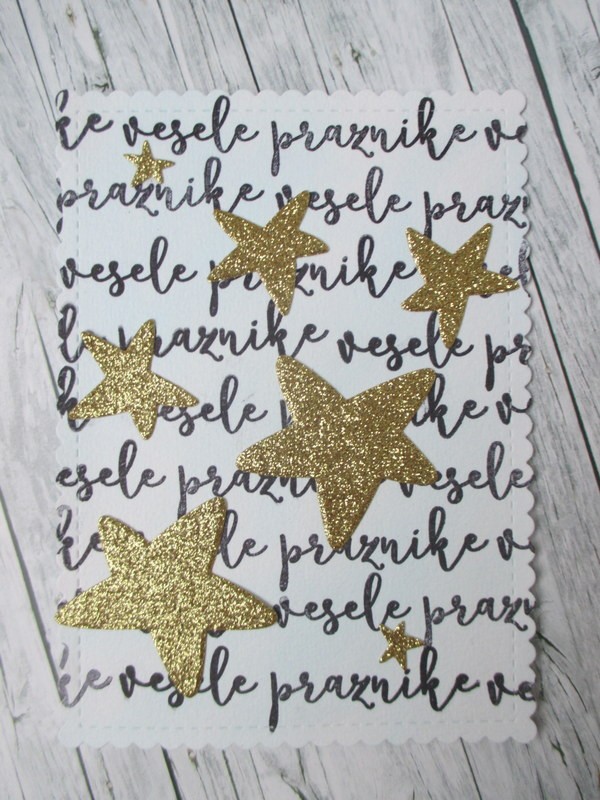 ke vesele praznike ve
praznike vesele praz
vesele praznike
praznike vesele pr
vesele ike v
esele prazni vesele
ke le praznike v
vesele prazn
ke vesele praznike ve